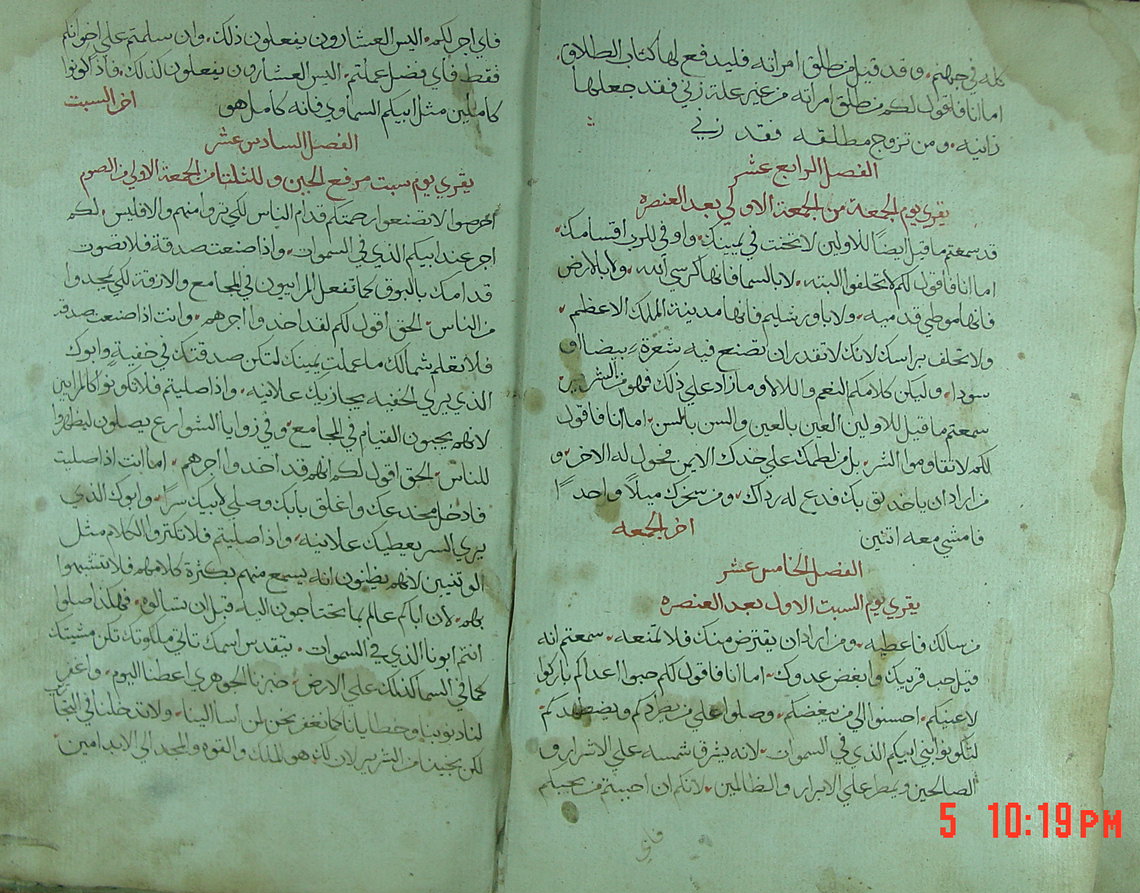 كله في جهنم . وقد قيل من طلق امراته فليدفع لها كتاب الطلاق
اما انا فاقول لكم من طلق امراته من غير علة زني فقد جعلها
زانيه . ومن تزوج مطلقه فقد زني
الفصل الرابع عشر
يقري يوم الجمعة من الجمعة الاولي بعد العنصره
قد سمعتم ما قيل ايضًا للاولين لا تحنث في يمينك . واوفي للرب اقسامك .
اما انا فاقول لكم لا تحلفوا البته . لا بالسما فانها كرسي الله . ولا بالارض
فانها موطي قدميه . ولا باورشليم فانها مدينة الملك الاعظم .
ولا تحلف براسك لانك لا تقدر ان تصنع فيه شعرة بيضا او
سودا . وليكن كلامكم النعم نعم واللا لا وما زاد علي ذلك فهو من الشرير
سمعتم ما قيل للاولين العين بالعين والسن بالسن . اما انا فاقول
لكم لا تقاوموا الشر . بل من لطمك علي خدك الايمن فحول له الاخر . و
من اراد ان ياخذ ثوبك فدع له رداك . ومن سخرك ميلاً واحدًا
فامشي معه اثنين اخر الجمعه
الفصل الخامس عشر
يقري يوم السبت الاول بعد العنصره
من سالك فاعطيه . ومن اراد ان يقترض منك فلا تمنعه . سمعتم انه
قيل حب قريبك وابغض عدوك . اما انا فاقول لكم حبوا اعداكم باركوا
لاعنيكم . احسنوا الي من يبغضكم . وصلوا علي من يطردكم ويضطهدكم
لتكونوا بني ابيكم الذي في السموات . لانه يشرق شمسه علي الاشرار و
الصالحين ويمطر علي الابرار والظالمين . لانكم ان احببتم من يحبكم
فاي
فاي اجر لكم . اليس العشارون يفعلون ذلك . وان سلمتم علي اخوانكم
فقط فاي فضل عملتم . اليس العشارون يفعلون كذلك . فاذًا كونوا
كاملين مثل ابيكم السماوي فانه كامل هو اخر السبت
الفصل السادس عشر
يقري يوم سبت مرفع الجبن وللثلثا من الجمعة الاولي من الصوم
احرصوا الا تصنعوا رحمتكم قدام الناس لكي تروا منهم والا فليس لكم
اجر عند ابيكم الذي في السموات . واذا صنعت صدقة فلا تصوت
قدامك بالبوق كما تفعل المراييون في المجامع والازقة لكي يمجدوا
من الناس . الحق اقول لكم لقد اخذوا اجرهم . وانت اذا صنعت صدقه
فلا تعلم شمالك ما عملت يمينك لتكن صدقتك في خفية وابوك
الذي يري الخفيه يجازيك علانيه . واذا صليتم فلا تكونوا كالمرايين
لانهم يحبون القيام في المجامع . وفي زوايا الشوارع يصلون ليظهروا
للناس . الحق اقول لكم انهم قد اخذوا اجرهم . اما انت اذا صليت
فادخل مخدعك واغلق بابك وصلي لابيك سرًا . وابوك الذي
يري السر يعطيك علانيه . واذا صليتم فلا تكثروا الكلام مثل
الوثنيين لانهم يظنون انه يسمع منهم بكثرة كلامهم فلا تتشبهوا
بهم . لان اباكم عالم بما تحتاجون اليه قبل ان تسالوه . فهكذا صلوا
انتم ابونا الذي في السموات . يتقدس اسمك تاتي ملكوتك تكن مشيتك
كما في السما كذلك علي الارض . خبزنا الجوهري اعطنا اليوم . واغفر
لنا ديوننا وخطايانا كما نغفر نحن لمن اسا الينا . ولا تدخلنا في التجارب
لكن نجينا من الشرير لان لك هو الملك والقوه والمجد الي الابد امين
5 10:19PM